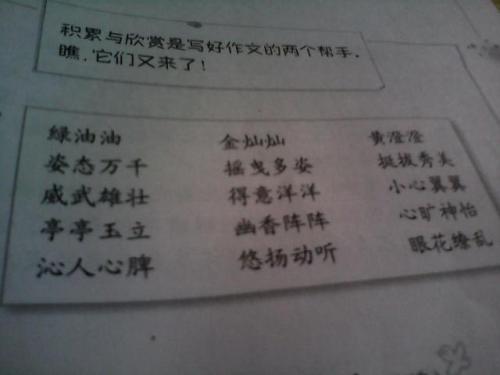 积累与欣赏是写好作文的两个帮手，
瞧，它们又来了！
绿油油 金灿灿 黄澄澄
姿态万千 摇曳多姿 挺拔秀美
威武雄壮 得意洋洋 小心翼翼
亭亭玉立 幽香阵阵 心旷神怡
沁人心脾 悠扬动听 眼花缭乱